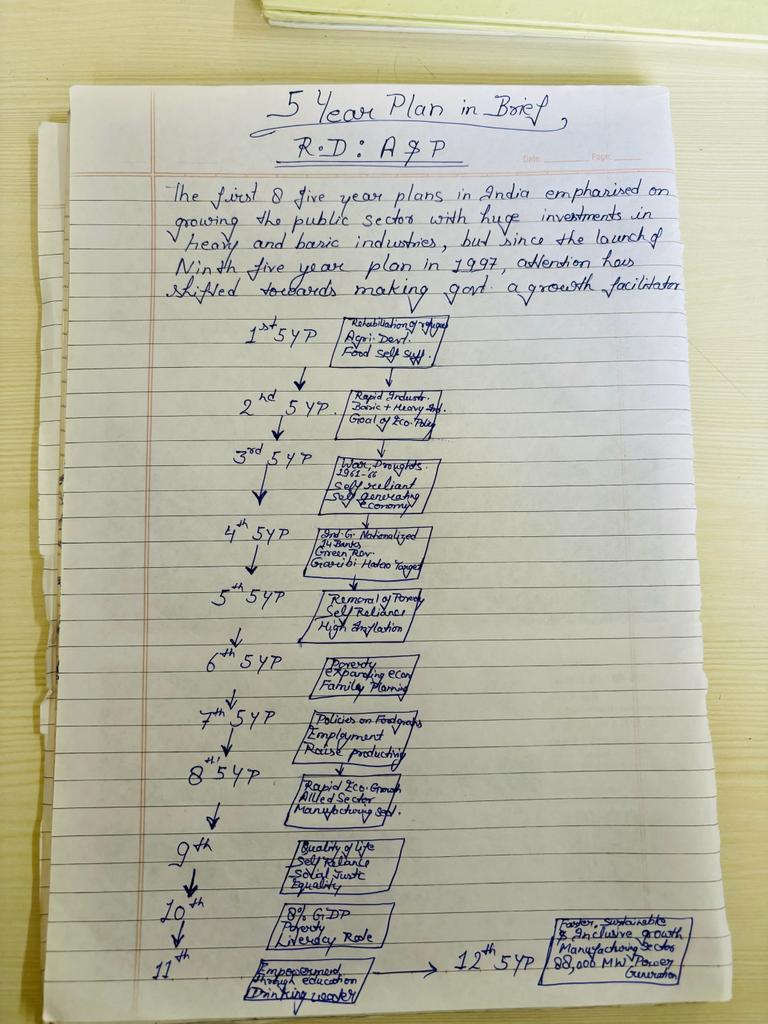 5 Year Plan in Brief
R.D: A & P
Date: Page:
The first 8 five year plans in India empharised on
growing the public sector with huge investments in
heavy and basic industries, but since the launch of
Ninth five year plan in 1997, attention has
shifted towards making govt a growth facilitator
1st 5 YP
Rehabiliation of refugees
Agri. Devt.
Food self suff.
2nd 5 YP.
Rapid Industr.
Basic + Heavy Ind.
Goal of Eco. Policy
3rd 5 YP
War, Droughts.
1961-66
Self reliant
Self generating
economy
4th 5YP
Ind. G. Nationalized
14 Banks
Green Rev.
Garibi Hatao Target
5th 5YP
Removal of Poverty
Self Reliance
High Inflation
6th 5YP
Poverty
expanding econ
Family Planning
7th 5YP
Policies on Foodgrains
Employment
Raise productivity
8th 5YP
Rapid Eco. Growth
Allied Sector
Manufacturing Sect.
9th
Quality of life
Self Reliance
Social Justic
Equality
10th
8% GDP
Poverty
Literacy Rate
11th
Empowerment
through education
Drinking water
12th 5YP
Faster, Sustainable
& Inclusive growth
Manufacturing Sector
88,000 MW Power
Generation